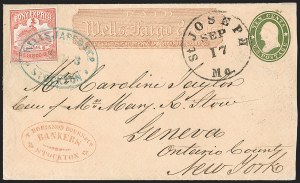 PONY EXPRESS
Wells, Fargo
WELLS, FARGO &
STOCKTON
St JOSEPH
SEP
17
Mo.
TEN CENTS
Mrs Caroline Taylor
Care of Mrs. Mary A. Stow
Geneva
Ontario County
New York
BANKERS
STOCKTON